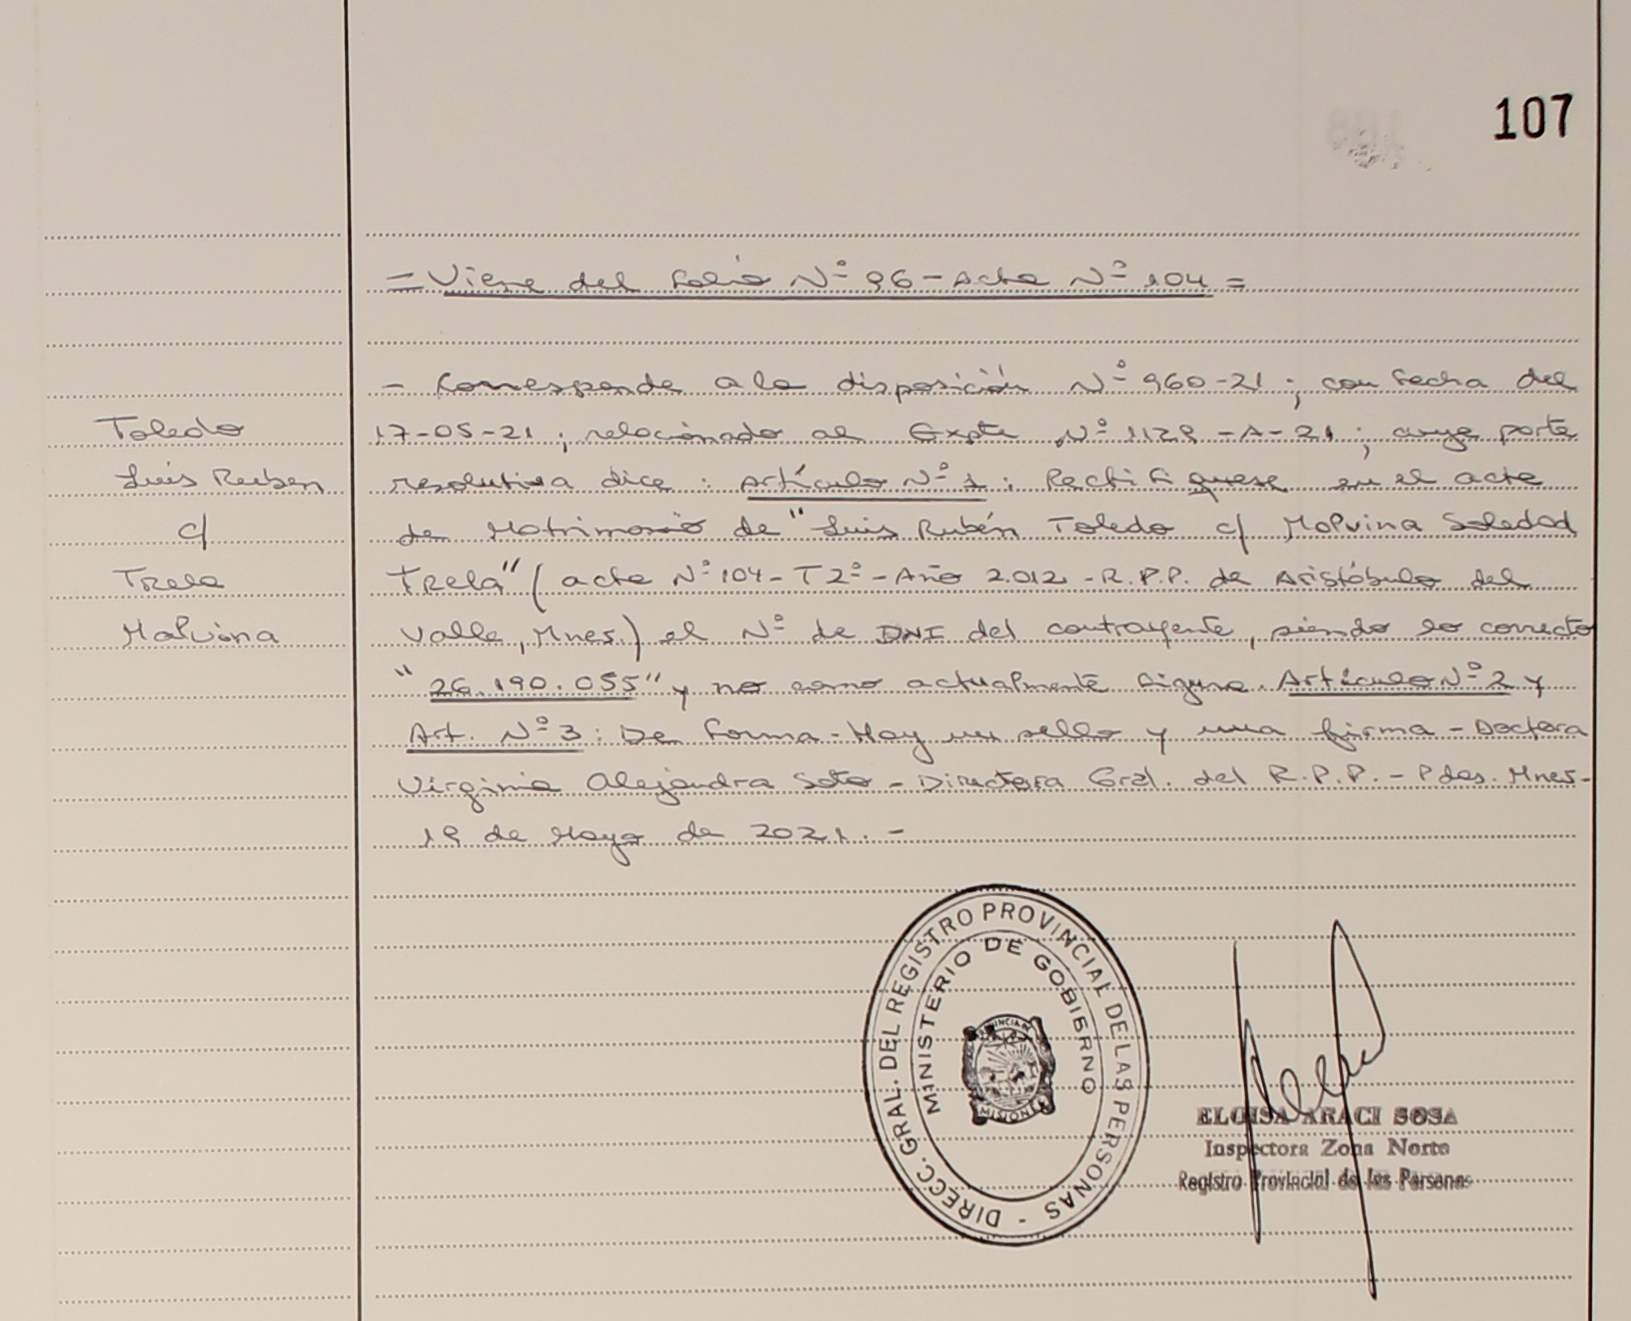 107
= Viene del folio Nº 96 - Acta Nº 104 =
- Corresponde a la disposición Nº 960-21 ; con fecha del
17-05-21 ; relacionado al Expte Nº 1129 -A-21 ; cuya parte
resolutiva dice : Artículo Nº 1 : Rectifiquese en el acta
de Matrimonio de "Luis Rubén Toledo c/ Malvina Soledad
Trela" ( acta Nº 104 - T 2º - Año 2.012 - R.P.P. de Aristóbulo del
Valle, Mnes.) el Nº de DNI del contrayente, siendo lo correcto
"26.190.055" y no como actualmente figura. Artículo Nº 2 y
Art. Nº 3 : De forma - Hay un sello y una firma - Doctora
Virginia Alejandra Soto - Directora Gral. del R.P.P. - Pdas. Mnes-
19 de Mayo de 2021. -
Toledo
Luis Ruben
c/
Trela
Malvina
DIRECC. GRAL. DEL REGISTRO PROVINCIAL DE LAS PERSONAS -
MINISTERIO DE GOBIERNO
PROVINCIA DE
MISIONES
ELOISA ARACI SOSA
Inspectora Zona Norte
Registro Provincial de las Personas